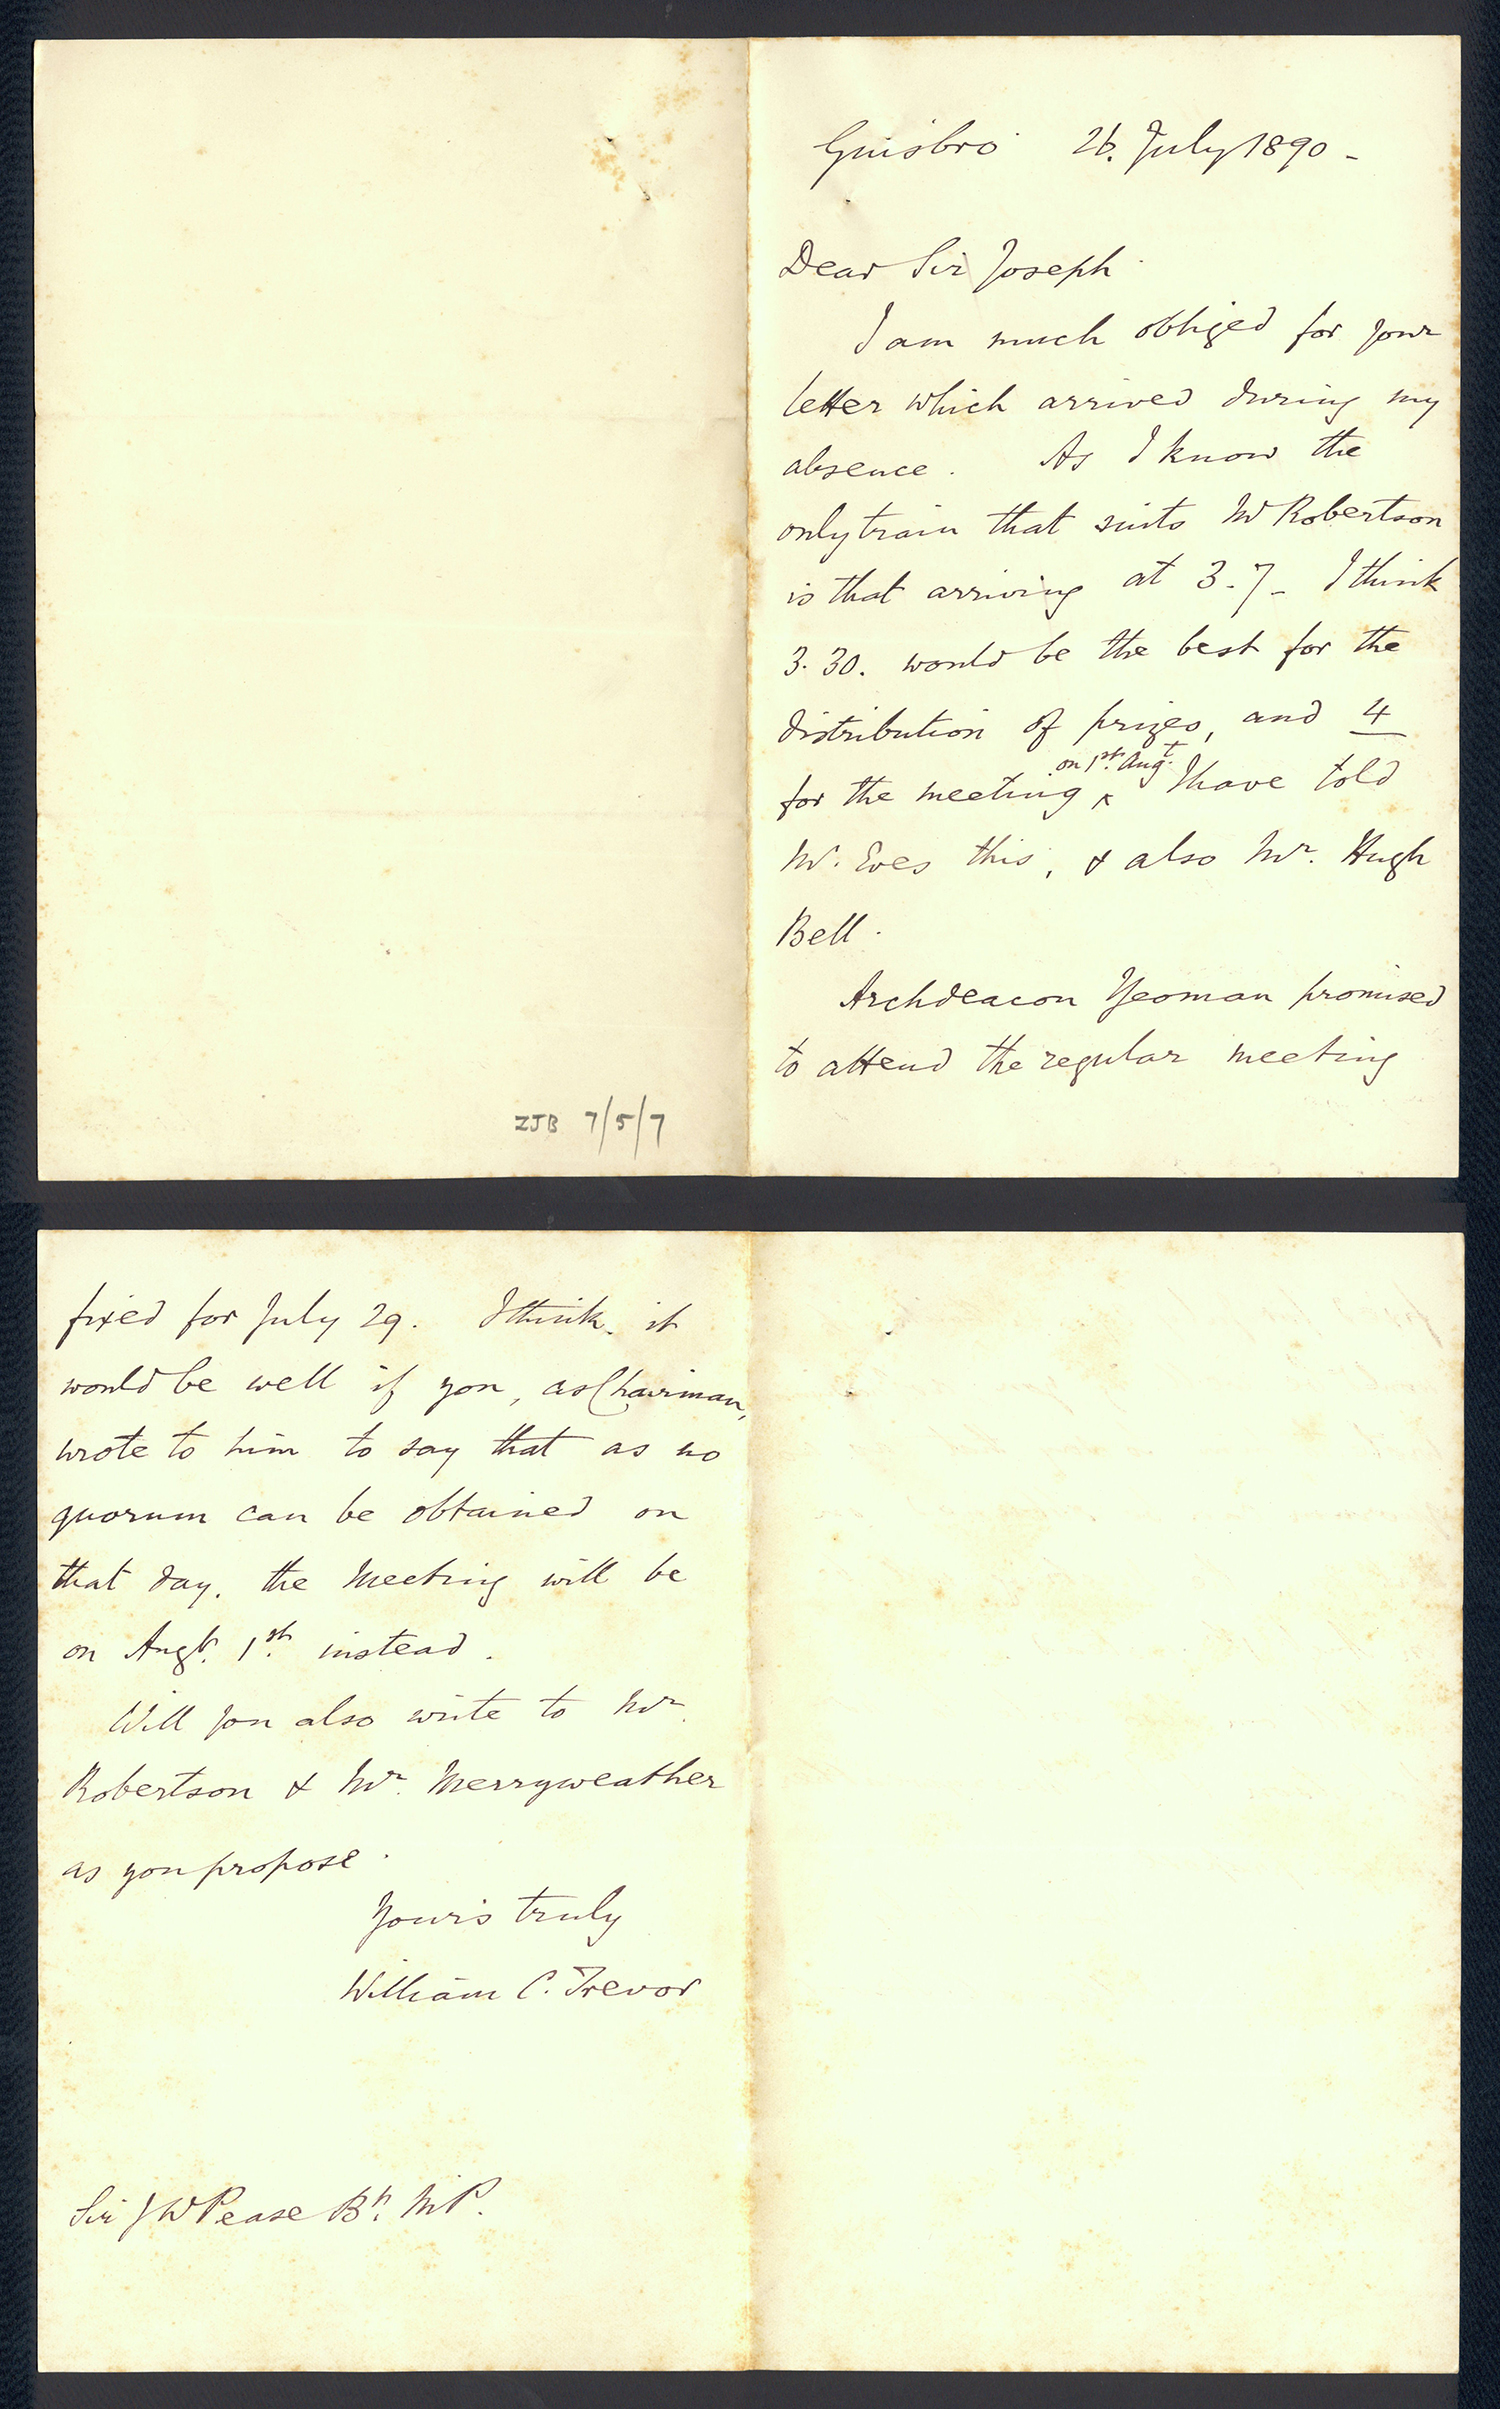 ZJB 7/5/7
Guisbro' 26. July 1890 -
Dear Sir Joseph
I am much obliged for your
letter which arrived during my
absence. As I know the
only train that suits Mr Robertson
is that arriving at 3.7 - I think
3.30. would be the best for the
distribution of prizes, and 4
on 1st. Augt.
for the meeting ^ I have told
Mr. Eves this, & also Mr. Hugh
Bell.
Archdeacon Yeoman promised
to attend the regular meeting
fixed for July 29. I think it
would be well if you, as Chairman,
wrote to him to say that as no
quorum can be obtained on
that day, the Meeting will be
on Augt. 1st. instead.
Will you also write to Mr.
Robertson & Mr. Merryweather
as you propose.
Yours truly
William C. Trevor
Sir J W Pease Bt. MP.